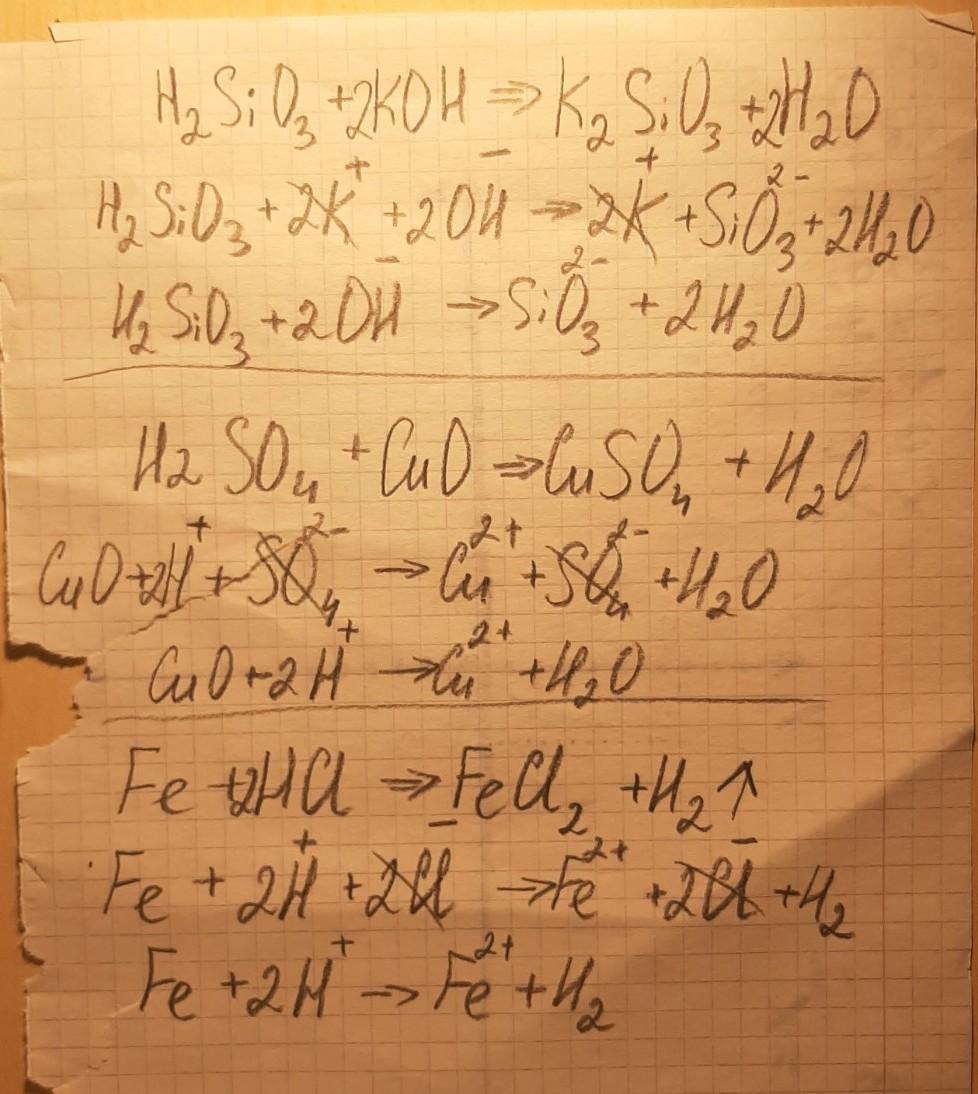 H₂SiO₃ +2KOH ⇒ K₂SiO₃ +2H₂O
H₂SiO₃ + 2K⁺ + 2OH⁻ → 2K⁺ + SiO₃²⁻ + 2H₂O
H₂SiO₃ + 2OH⁻ → SiO₃²⁻ + 2H₂O
H2 SO₄ + CuO ⇒ CuSO₄ + H₂O
CuO + 2H⁺ + SO₄²⁻ → Cu²⁺ + SO₄²⁻ + H₂O
CuO + 2H⁺ → Cu²⁺ + H₂O
Fe + 2HCl ⇒ FeCl₂ + H₂↑
Fe + 2H⁺ + 2Cl⁻ → Fe²⁺ + 2Cl⁻ + H₂
Fe + 2H⁺ → Fe²⁺ + H₂